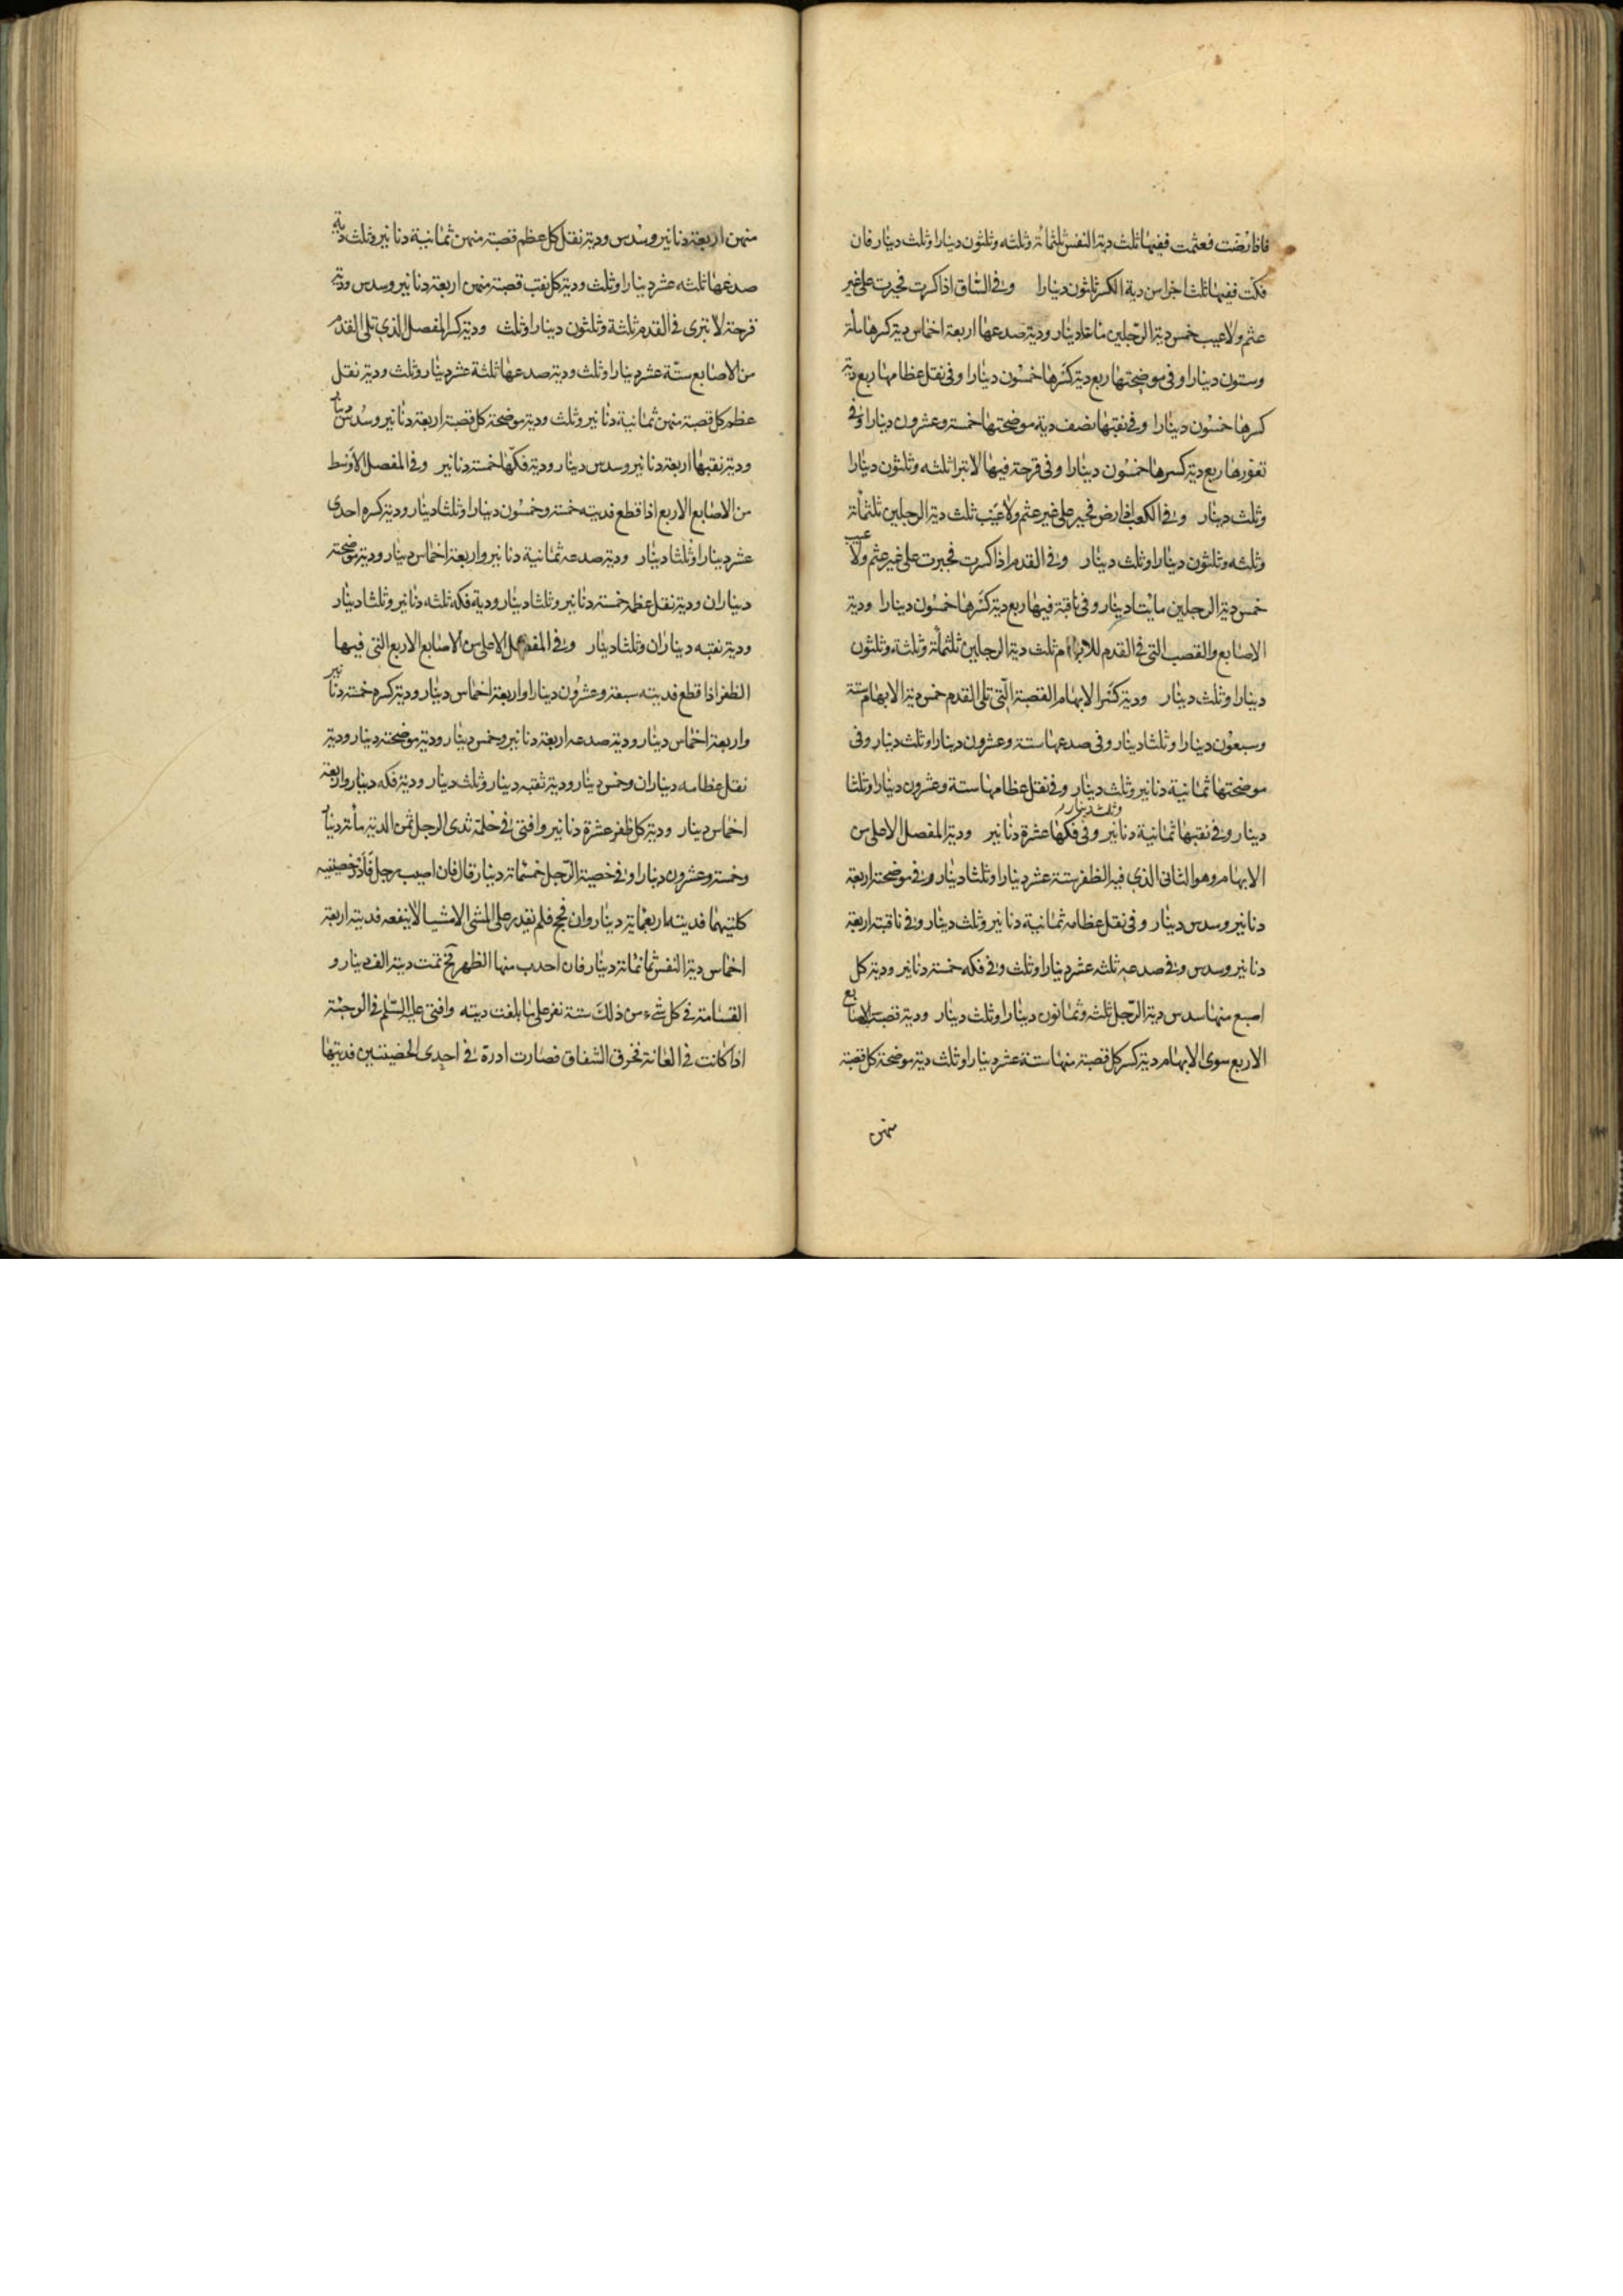 فاذا رضت فعثمت ففيها ثلث دية النفس ثلثمائة وثلثه وثلثون دينارا وثلث دينار فان
فكت ففيها ثلثة اجزا من دية الكسر ثلثون دينارا وفى الساق اذا كسرت فجبرت على غير
عثم ولا عيب خمس دية الرجلين مائتا دينار ودية صدعها اربعة اخماس دية كسرها مائة
وستون دينارا وفى موضحتها ربع دية كسرها خمسون دينارا وفى نقل عظامها ربع دية
كسرها خمسون دينارا وفى نقبها نصف دية موضحتها خمسة وعشرون دينارا وفى
نفوذها ربع دية كسرها خمسون دينارا وفى قرحة فيها لا تبرا ثلثه وثلثون دينارا
وثلث دينار وفى الكعب اذا رض فجبر على غير عثم ولا عيب ثلث دية الرجلين ثلثمائة
وثلثه وثلثون دينارا وثلث دينار وفى القدم اذا كسرت فجبرت على غير عثم ولا عيب
خمس دية الرجلين مائتا دينار وفى ناقبة فيها ربع دية كسرها خمسون دينارا ودية
الاصابع والقصب التى فى القدم للابهام ثلث دية الرجلين ثلثمائة وثلثة وثلثون
دينارا وثلث دينار ودية كسر الابهام القصبة التى تلى القدم خمس دية الابهام ستة
وسبعون دينارا وثلثا دينار وفى صدعها ستة وعشرون دينارا وثلث دينار وفى
موضحتها ثمانية دنانير وثلث دينار وفى نقل عظامها ستة وعشرون دينارا وثلثا
دينار وفى نقبها ثمانية دنانير وثلث دينار وفى فكها عشرة دنانير ودية المفصل الاعلى من
الابهام وهو الثانى الذى فيه الظفر ستة عشر دينارا وثلثا دينار وفى موضحته اربعة
دنانير وسدس دينار وفى نقل عظامه ثمانية دنانير وثلث دينار وفى ناقبته اربعة
دنانير وسدس وفى صدعه ثلثه عشر دينارا وثلث وفى فكه خمسة دنانير ودية كل
اصبع منها سدس دية الرجل ثلثه وثمانون دينارا وثلث دينار ودية قصبة الاصابع
الاربع سوى الابهام دية كسر كل قصبة منها ستة عشر دينارا وثلث دية موضحة كل قصبة
منهن
منهن اربعة دنانير وسدس ودية نقل كل عظم قصبة منهن ثمانية دنانير وثلث دية
صدعها ثلثه عشر دينارا وثلث ودية كل نقب قصبة منهن اربعة دنانير وسدس ودية
قرحة لا تبرى فى القدم ثلثة وثلثون دينارا وثلث ودية كسر المفصل الذى تلى القدم
من الاصابع ستة عشر دينارا وثلث ودية صدعها ثلثة عشر دينار وثلث ودية نقل
عظم كل قصبة منهن ثمانية دنانير وثلث ودية موضحة كل قصبة اربعة دنانير وسدس دينار
ودية نقبها اربعة دنانير وسدس دينار ودية فكها خمسة دنانير وفى المفصل الاوسط
من الاصابع الاربع اذا قطع فديته خمسة وخمسون دينارا وثلثا دينار ودية كسره احدى
عشر دينارا وثلثا دينار ودية صدعه ثمانية دنانير واربعة اخماس دينار ودية موضحته
ديناران ودية نقل عظمه خمسة دنانير وثلثا دينار ودية فكه ثلثه دنانير وثلثا دينار
ودية نقبه ديناران وثلثا دينار وفى المفصل الاعلى من الاصابع الاربع التى فيها
الظفر اذا قطع فديته سبعة وعشرون دينارا واربعة اخماس دينار ودية كسره خمسة دنانير
واربعة اخماس دينار ودية صدعه اربعة دنانير وخمس دينار ودية موضحته دينار ودية
نقل عظامه ديناران وخمس دينار ودية نقبه دينار وثلث دينار ودية فكه دينار واربعة
اخماس دينار ودية كل ظفر عشرة دنانير وافتى فى حلمة ثدى الرجل ثمن الدية مائة دينار
وخمسة وعشرون دينارا وفى خصية الرجل خمسمائة دينار قال فان اصيب رجل فأدر خصيتيه
كلتيهما فديته اربعمائة دينار وان فحج فلم يقدر على المشى الا مشيا لا ينفعه فديته اربعة
اخماس دية النفس ثمانمائة دينار فان احدب منها الظهر فح تمت ديته الف دينار و
القسامة فى كل شىء من ذلك ستة نفر على ما بلغت ديته وافتى عليه السلم فى الوجئة
اذا كانت فى العانة فخرق الشفاق فصارت ادرة فى احدى الخصيتين فديتها